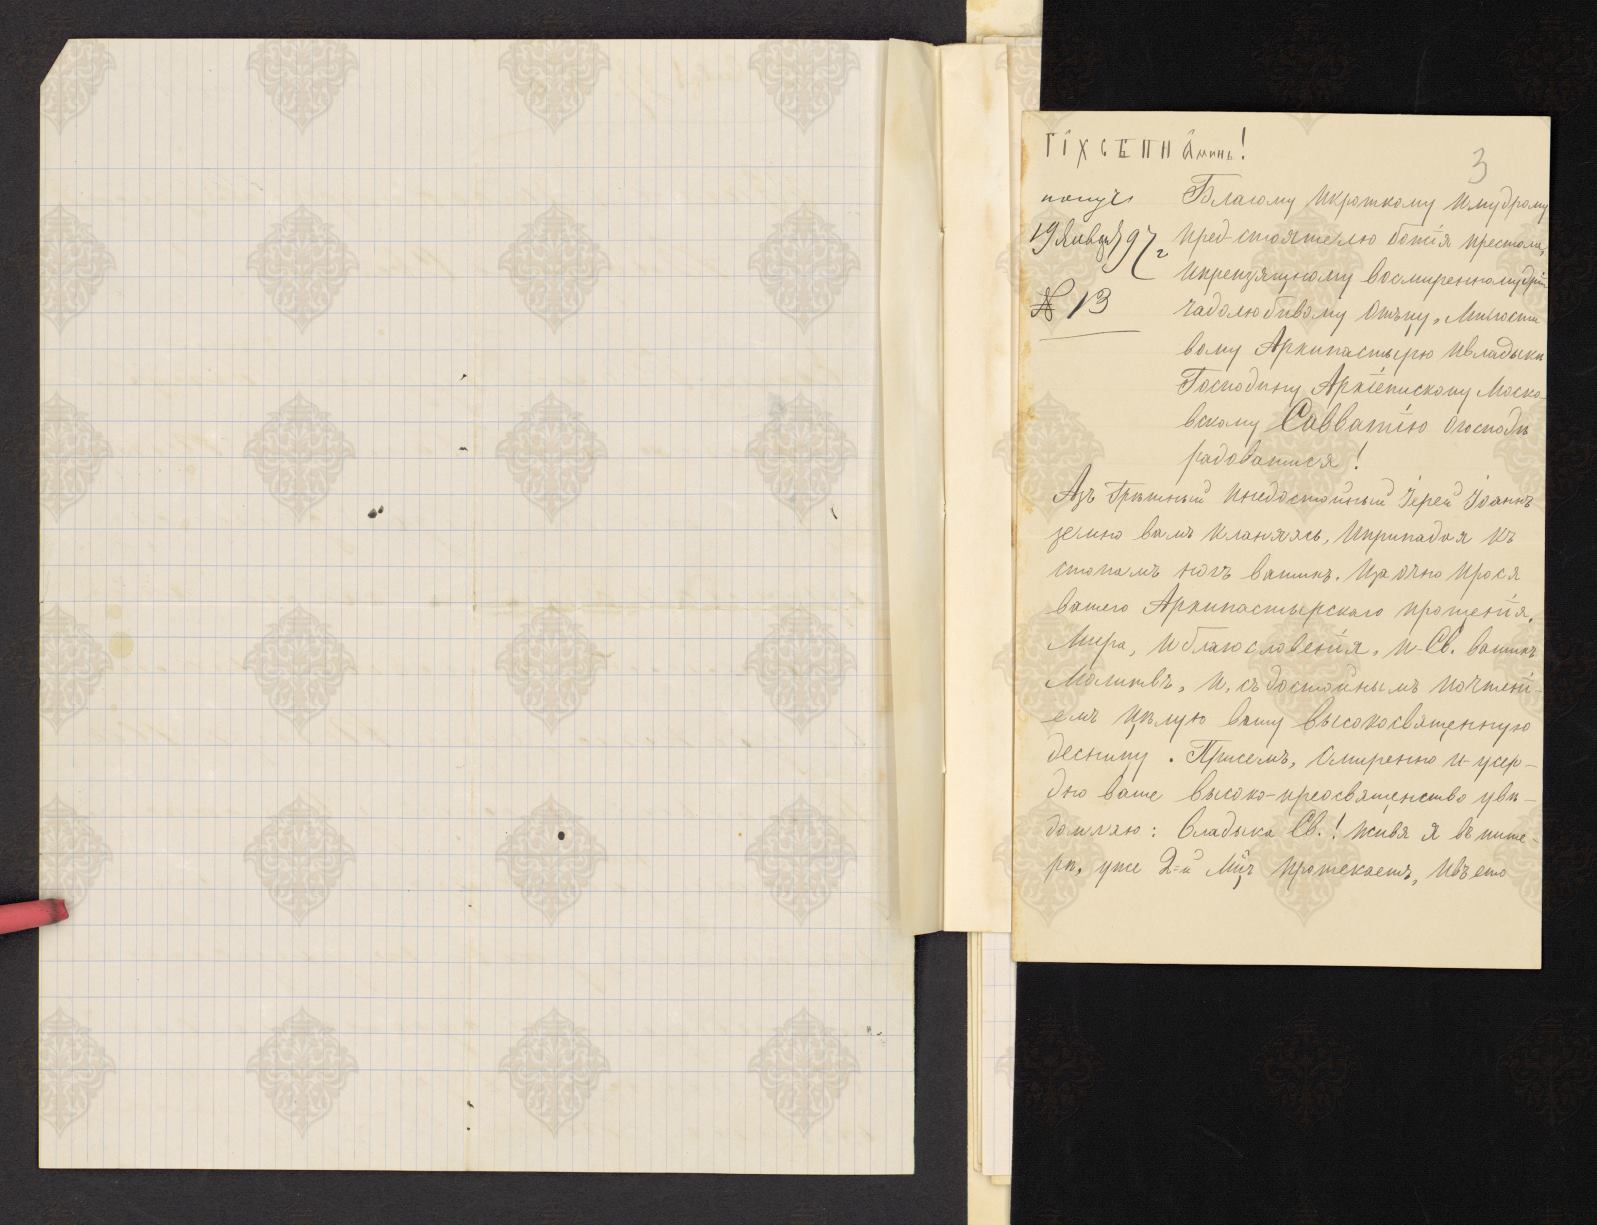 Г І Х С Б П Н Аминь!
3
получ
19 Января 97 г
№ 13
Благому икроткому имудрому
пред-стоятелю божія престола,
ипреизящному восмиренномудріи
чадолюбивому Отъцу, Милости
вому Архипастырю ивладыки
Господину Архіепископу Моско-
вскому Савватію огосподѣ
радоватися!
Азъ Грѣшный инедостойный Іерей Іоаннъ
земно вамъ кланяясь, иприпадая къ
стопамъ ногъ вашихъ. Изаочно прося
вашего Архипастырскаго прощенія,
Мира, иблагословенія, и-Св. вашихъ
Молитвъ, и, съдостойнымъ почтені-
емъ цѣлую вашу высокосвященную
десницу. Присемъ, смиренно и-усер-
дно ваше высоко-преосвященство увѣ-
домляю: Владыка Св.! живя я въпите-
рѣ, уже 2-й Мцъ протекаетъ, ивъето